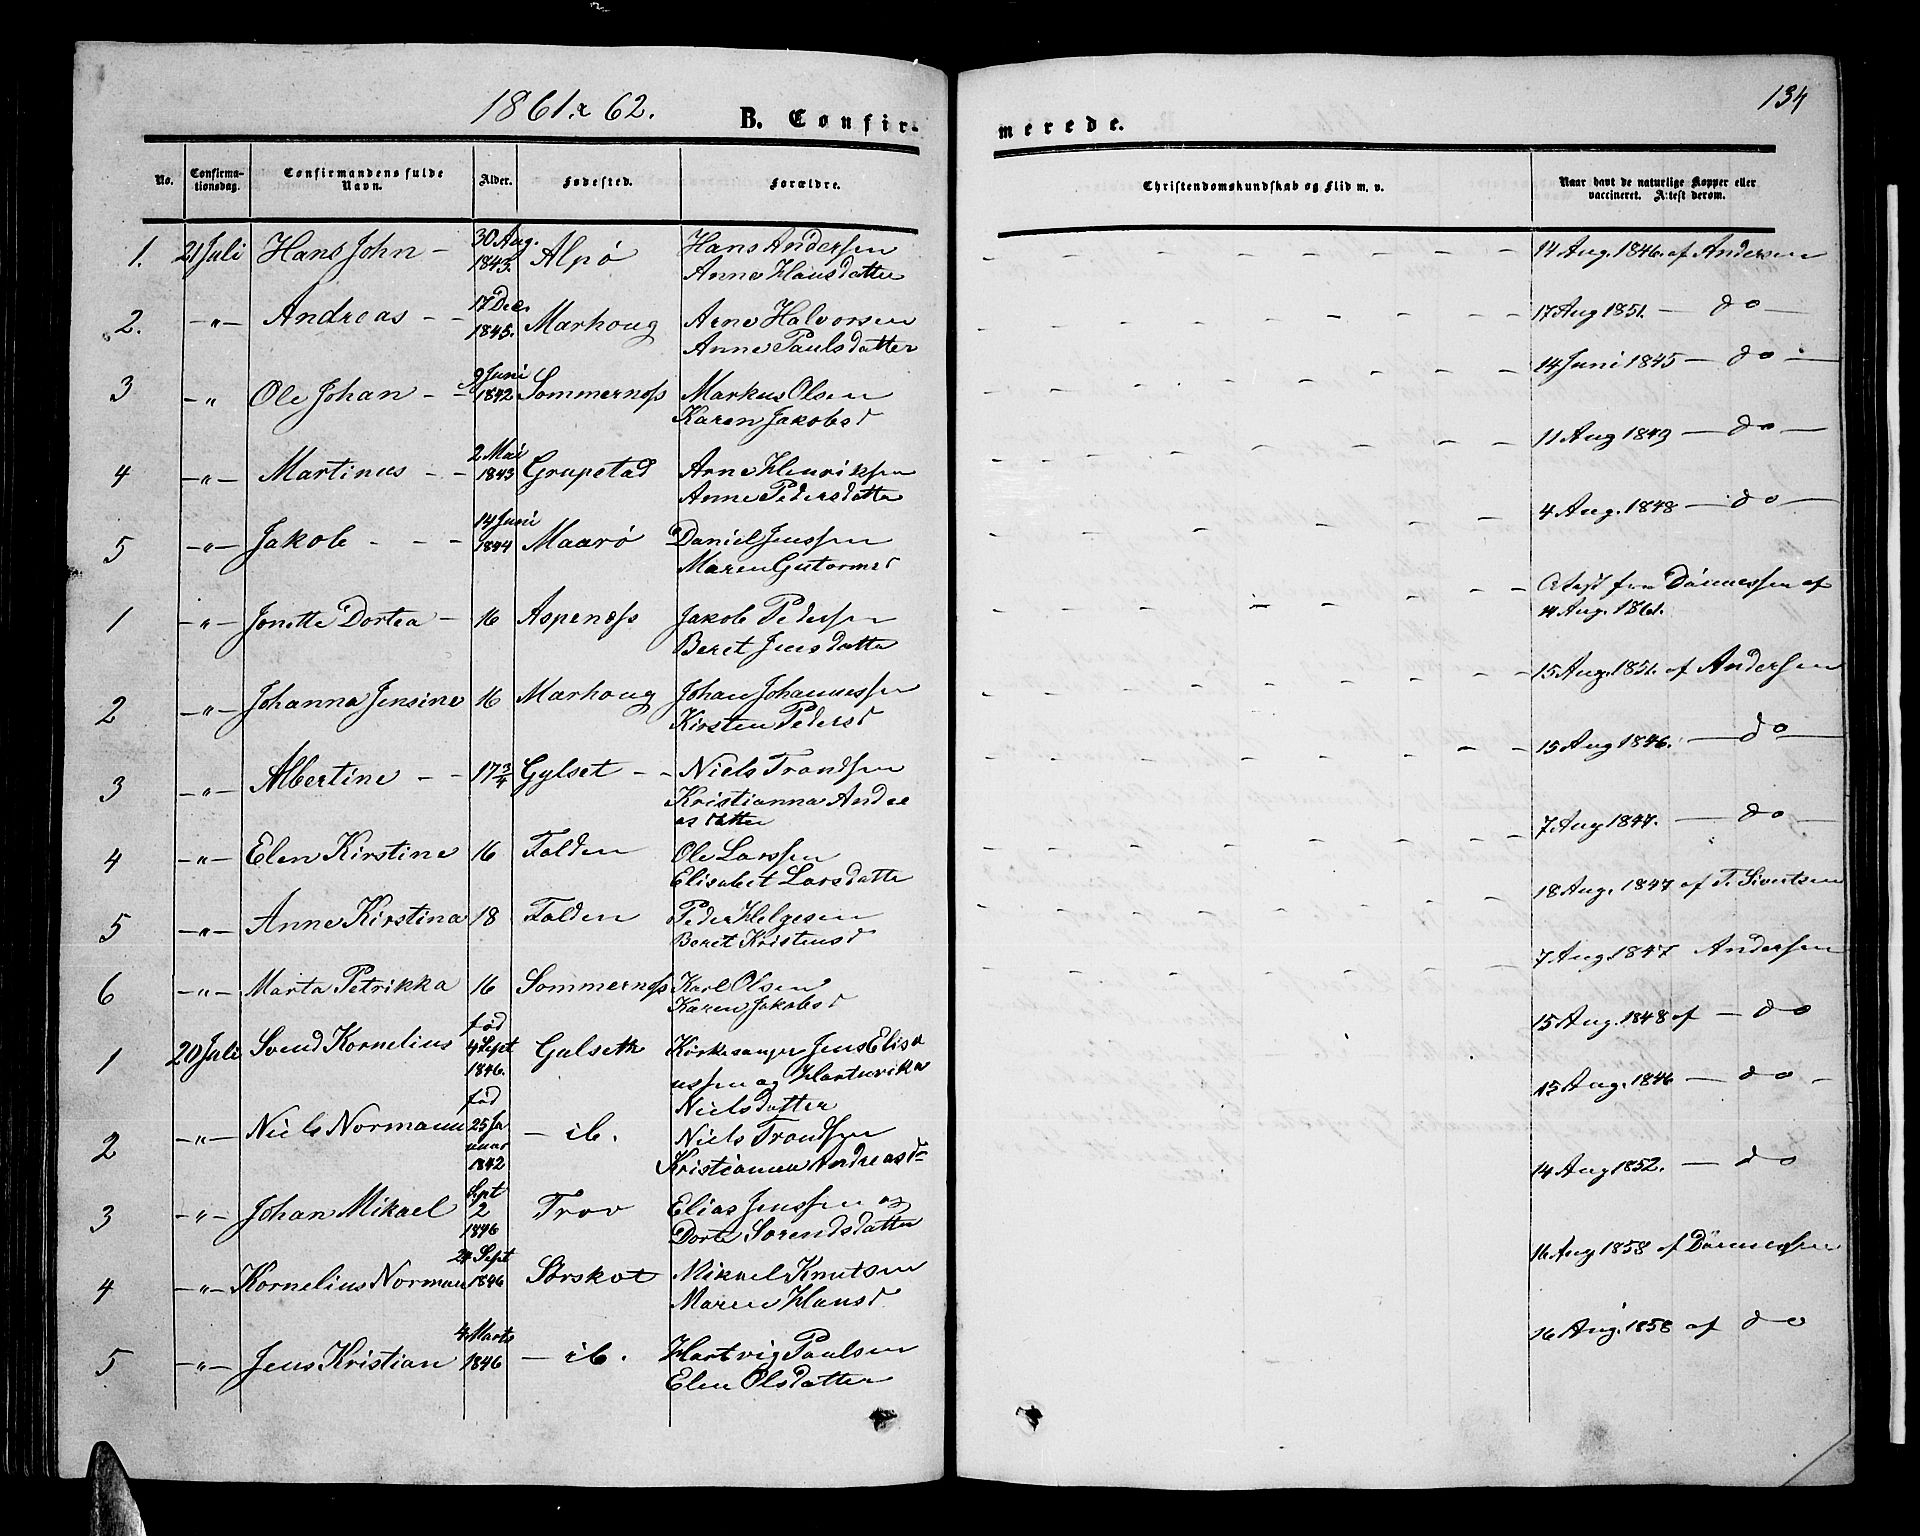 1861 & 62.
B. Confir-
merede.
134
No.
Confirmationsdag.
Confirmandens fulde Navn.
Alder.
Fødested.
Forældre.
Christendomskundskab og Flid m. v.
Naar havt de naturlige Kopper eller vaccineret. Attest derom.
1. 21 Juli Hans John - 30 Aug. 1843. Alpø Hans Andersen 14 Aug. 1846. af Andersen
Anne Hansdatter
2. -"- Andreas - - 17 Dec. 1845. Marhoug Arne Halvorsen 17 Aug 1851. - do -
Anne Paulsdatter
3 -" Ole Johan - - 9 Juni 1842 Sommerness Markus Olsen 14 Juni 1845 - do -
Karen Jakobsd
4 -"- Martinus - - 2 Mai 1843 Grupstad Arne Henriksen 11 Aug 1843 - do -
Anne Pedersdatter
5 -"- Jakob - - - 14 Juni 1844 Maarø Daniel Jenssen 4 Aug. 1848 - do -
Maren Gutormsd
1 -"- Jonette Dortea - 16 Aspenæss Jakob Pedersen Attest fra Dønnessen af
Beret Jensdatter 14 Aug. 1861.
2 -"- Johanna Jensine 16 Marhoug Johan Johannessen 15 Aug. 1851. af Andersen
Kirsten Pedersd
3 -"- Albertine - - 17 3/4 Gylset - - Niels Trondsen 15 Aug 1846. - do -
Kristianna Andre
asdatter
4 -"- Elen Kirstine 16 Folden Ole Larssen 7 Aug 1847. - do -
Elisabet Larsdatter
5 -"- Anne Kirstina 18 Folden Peder Helgesen 18 Aug. 1847 af T. Sivertsen
Beret Kristensd
6 -"- Marta Petrikka 16 Sommernæss Karl Olsen 7 Aug. 1847 Andersen
Karen Jakobsd
1 20 Juli Svend Kornelius fød 4 Sept 1846. Gulseth Kirkesanger Jens Elisæ 15 Aug. 1848 af - do
ussen og Hartvrika
Nielsdatter
2 -"- Niels Normann fød 25 Januar 1842 - ib. Niels Trondsen 15 Aug. 1846 - do -
Kristianna Andreasd
3 -"- Johan Mikael Sept 2 1846 Trov Elias Jenssen og 14 Aug 1852. - do
Dorte Sorendsdatter
4 -"- Kornelius Norman 24 Sept 1846 Sørskot Mikael Knutsen 16 Aug 1858 af Dønnessen
Maren Hansd
5 -"- Jens Kristian 4 Marts 1846 - ib. Hartvig Paulsen 16 Aug. 1858 af do
Elen Olsdatter